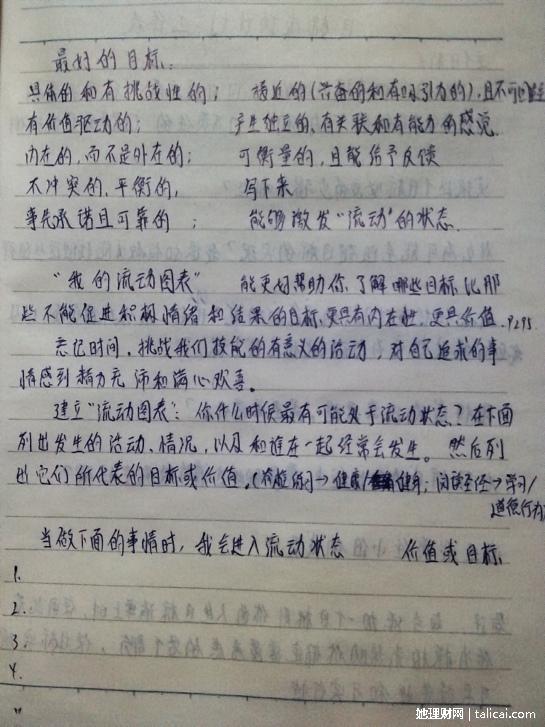 最好的目标:
具体的和有挑战性的; 接近的(兴奋的和有吸引力的),且不可
有价值驱动的; 产生独立的、有关联和有能力的感觉.
内在的,而不是外在的; 可衡量的,且能给予反馈
不冲突的、平衡的, 写下来
事先承诺且可靠的 ; 能够激发“流动”的状态.
“我的流动图表” 能更好帮助你了解哪些目标比那
些不能促进积极情绪和结果的目标更具有内在性.更具价值.P295
忘记时间,挑战我们技能的有意义的活动,对自己追求的事
情感到精力充沛和满心欢喜。
建立“流动图表”:你什么时候最有可能处于流动状态?在下面
列出发生的活动、情况,以及和谁在一起经常会发生。然后列
出它们所代表的目标或价值.(练习→健康/健身;阅读圣经→学习/
道德行为)
当做下面的事情时,我会进入流动状态 价值或目标.
1.
2.
3.
4.
她理财网 | talicai.com